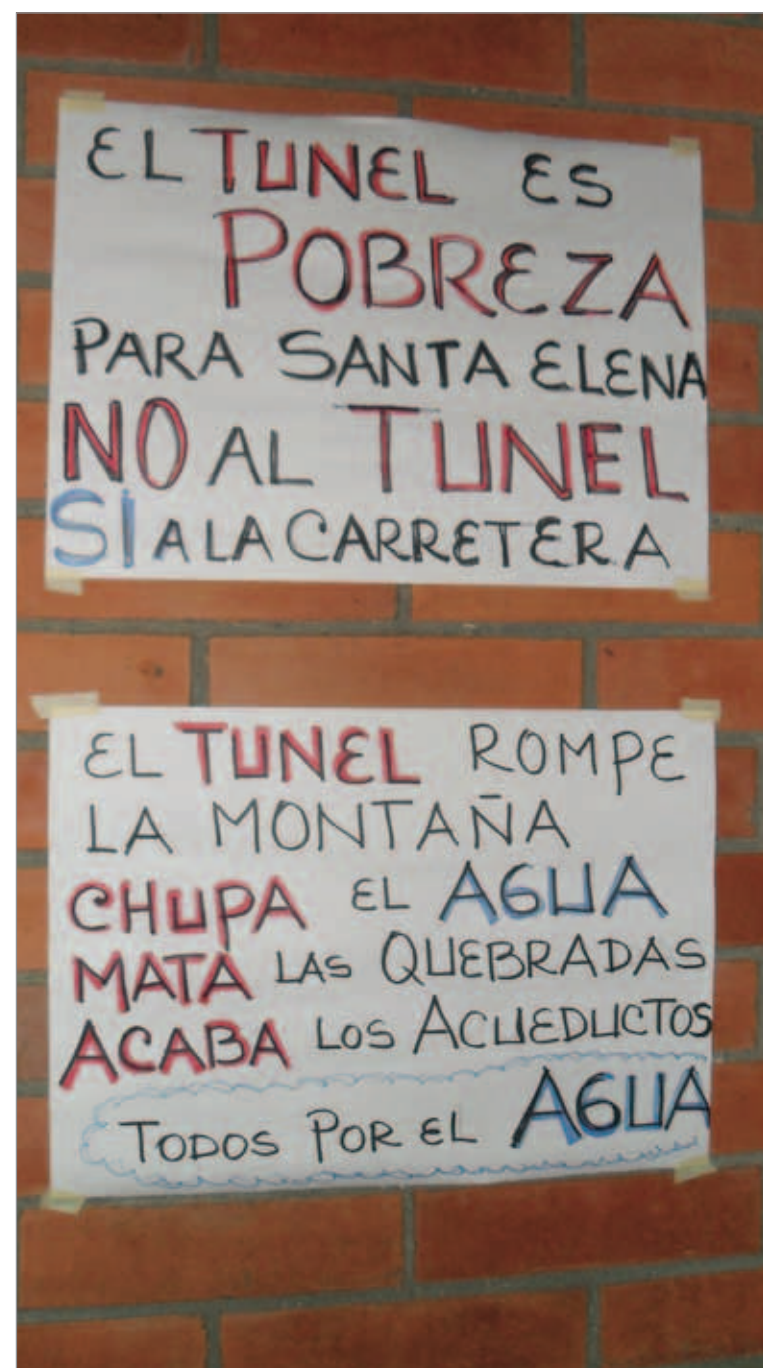 EL TUNEL ES
POBREZA
PARA SANTA ELENA
NO AL TUNEL
SI A LA CARRETERA
EL TUNEL ROMPE
LA MONTAÑA
CHUPA EL AGUA
MATA LAS QUEBRADAS
ACABA LOS ACUEDUCTOS
TODOS POR EL AGUA